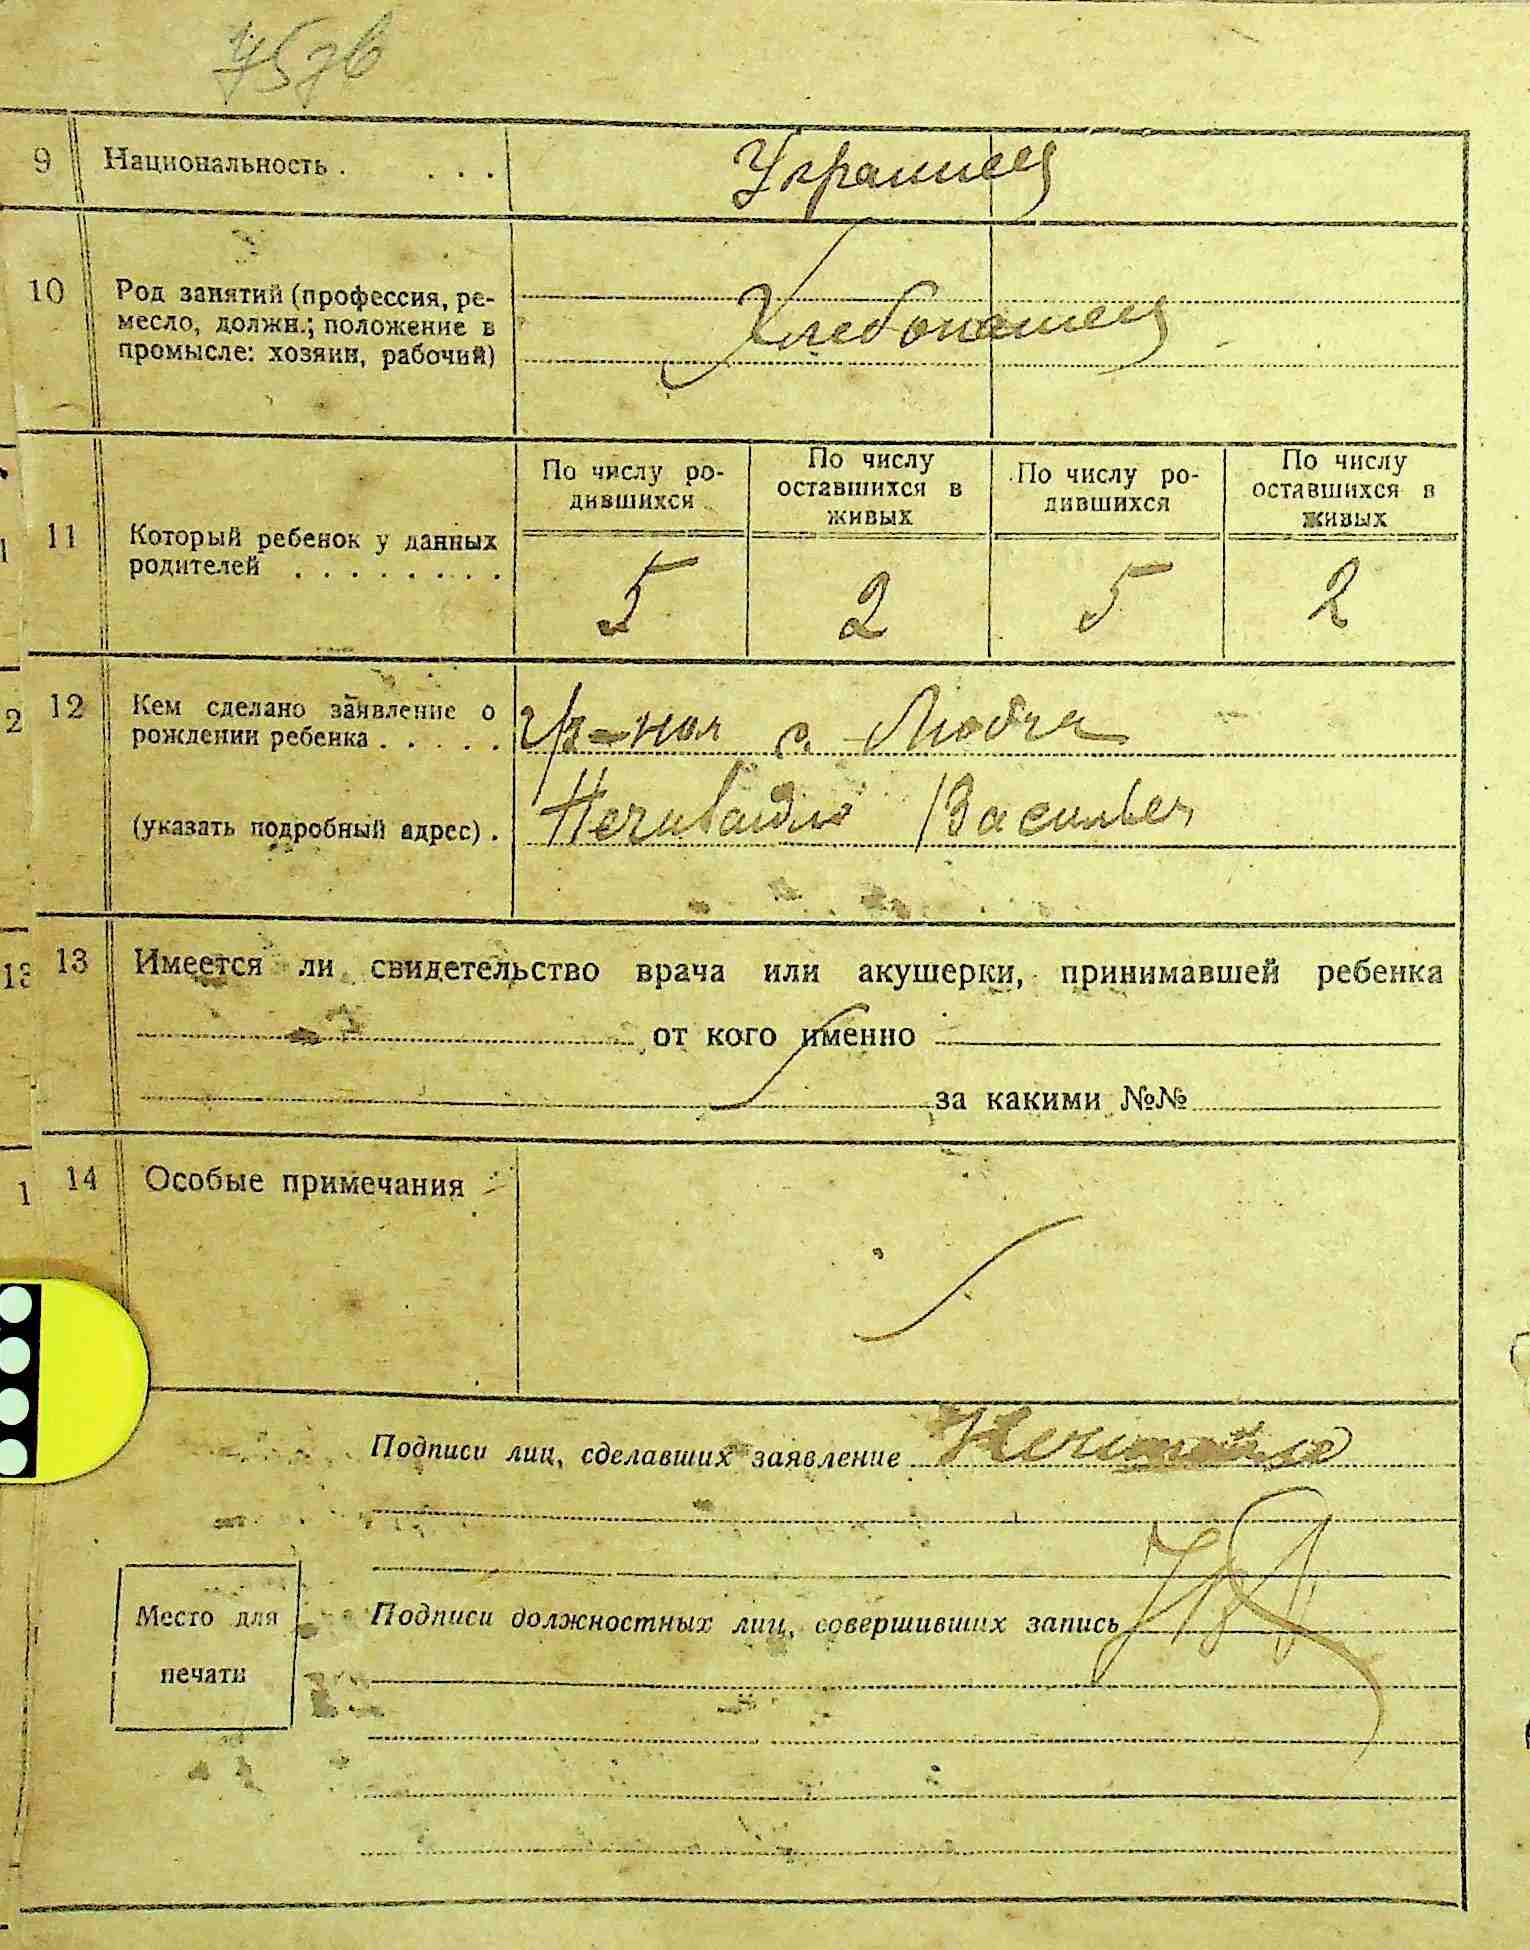 75 зв
9 Национальность . . . . Украинец
10 Род занятий (профессия, ре-
месло, должн.; положение в
промысле: хозяин, рабочий)
Хлебопашец
11 Который ребенок у данных
родителей . . . . . . . .
По числу ро-
дившихся
По числу
оставшихся в
живых
По числу ро-
дившихся
По числу
оставшихся в
живых
5 2 5 2
12 Кем сделано заявление о
рождении ребенка . . . . .
(указать подробный адрес) .
гр-ном с. Любча
Василий
13 Имеется ли свидетельство врача или акушерки, принимавшей ребенка
от кого именно
за какими №№
14 Особые примечания
Подписи лиц, сделавших заявление
Место для
печати
Подписи должностных лиц, совершивших запись
2
13
1